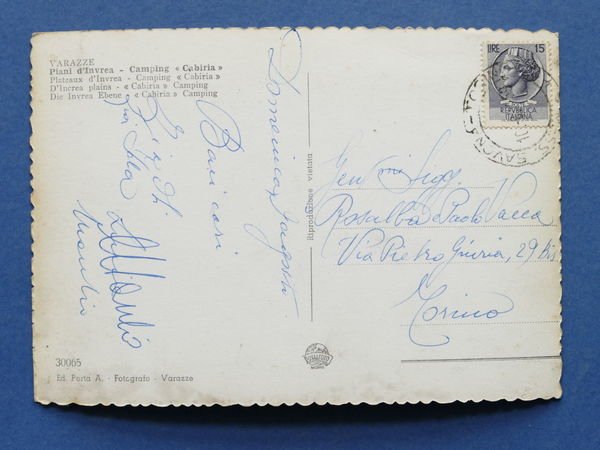 VARAZZE
Piani d'Invrea - Camping « Cabiria »
Plateaux d'Invrea - Camping « Cabiria »
D'Increa plains - « Cabiria » Camping
Die Invrea Ebene - « Cabiria » Camping
Domenica
Baci cari
Gen.mi Sigg.
Rosalba e Paolo Vacca
Via Pietro Giuria, 29 bis
Torino
Riproduzione vietata
LIRE 15
REPVBBLICA
ITALIANA
SAVONA
30065
Ed. Porta A. - Fotografo - Varazze